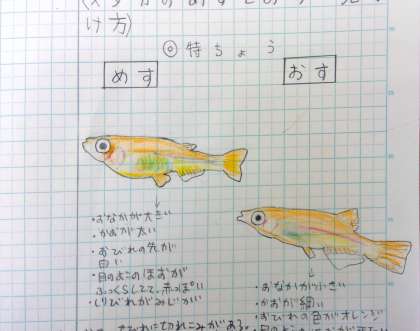 (メダカのめすとおすの見分
け方)
◎特ちょう
めす
おす
・おなかが大きい
・かおが太い
・おびれの先が
白い
・目のよこのほほが
ふっくらしてて、赤っぽい
・しりびれがみじかい
・おなかが小さい
・かおが細い
・おびれの色がオレンジ
せびれに切れこみがある。